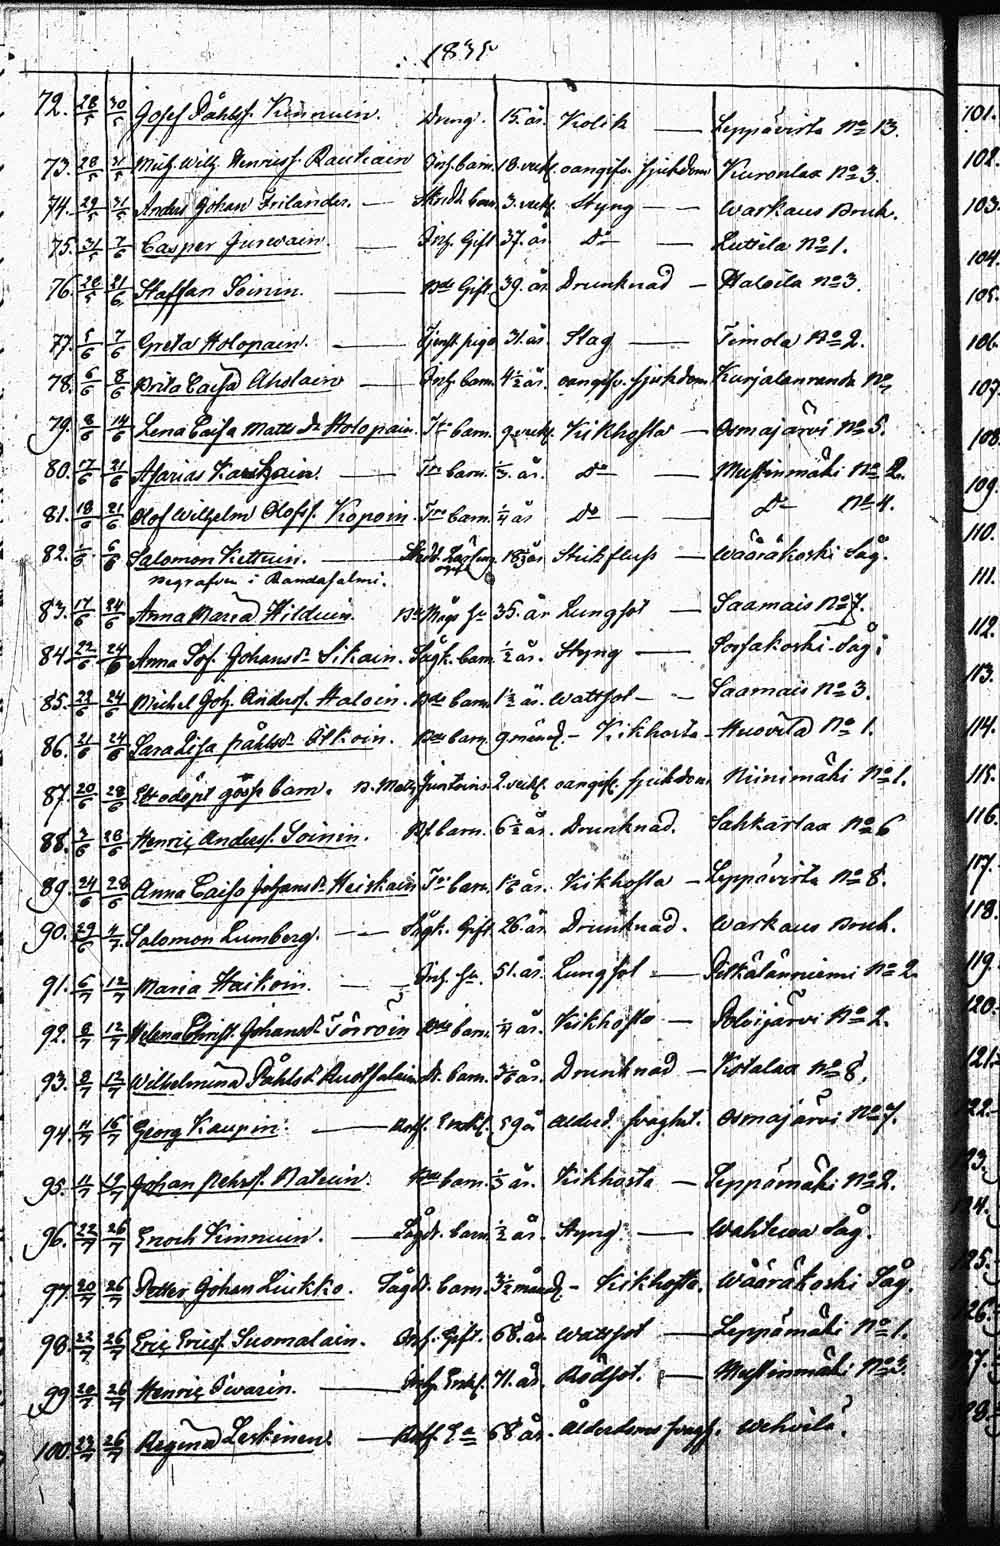 1835
72. 28/5 30/5 Josef Påhlss. Kinnuin. Dreng. 15. år. Kolik — Leppävirta No 13.
73. 28/5 31/5 Mich. Wilh. Henricss. Rautiain Inh. barn. 18. veck. oangifv. sjukdom Kuronlax No 3.
74. 29/5 31/5 Anders Johan Frilander. — barn 3. veck. Styng — Warkaus Bruk.
75. 31/5 7/6 Casper Jurvain — Inh. Gift 37. år Do — Luttila No 1.
76. 20/5 21/6 Staffan Soinin. — Bde Gift 39. år Drunknad — Haloila No 3.
77. 5/6 7/6 Greta Holopain. — Tjenst. piga 31. år Slag — Timola No 2.
78. 6/6 8/6 Brita Caisa Aholain — Inh. barn 4 1/2 år. oangifv. sjukdom Kurjalanranda No
79. 8/6 14/6 Lena Caisa Matts dr Holopain. Trp barn. 9 veck. Kikhosta — Osmajärvi No 5.
80. 17/6 21/6 Asarias Karhain — barn. 1/3 år. Do — Mustinmäki No 2.
81. 18/6 21/6 Olof Wilhelm Olofss. Kopoin barn. 1/4 år Do — Do No 4.
82. 1/6 6/6 Salomon Kettuin. — 18 1/2 år Stickfluss — Wääräkoski Såg.
Begrafven i Randasalmi.
83. 17/6 24/6 Anna Maria Hilduin. 35. år Lungsot — Saamais No 7.
84. 22/6 24/6 Anna Sof. Johansdr Sikain. Sågk. barn. 1/2 år. Styng — Sorsakoski Såg.
85. 22/6 24/6 Michel Joh. Anderss. Haloin. Bde barn 1 1/2 år. Wattsot — Saamais No 3.
86. 21/6 24/6 Sara Lisa Påhlsdr Itkoin. Bde barn 9 månad. — Kikhosta — Huovila No 1.
87. 20/6 28/6 Ett odöpt gosse barn. B. Matts Juntoins 2. veck. oangifv. sjukdom Niinimäki No 1.
88. 7/6 28/6 Henric Anderss. Soinin. barn. 6 1/2 år. Drunknad. Sahkarlax No 6
89. 24/6 28/6 Anna Caisa Johansdr Heiskain barn. år. Kikhosta — Leppävirta No 8.
90. 29/6 4/7 Salomon Lumberg. — Sågk. Gift 26. år. Drunknad. Warkaus Bruk.
91. 6/7 12/7 Maria Haikoin. — Inh. hu. 51. år. Lungsot — Pitkälänniemi No 2.
92. 8/7 12/7 Helena Christ. Johansdr Törröin Bde barn. 1/4 år. Kikhosta — Polvijärvi No 2.
93. 8/7 12/7 Wilhelmina Påhlsdr Ruotsalain barn. år. Drunknad — Kotalax No 8.
94. 11/7 16/7 Georg Kaupin. — Rotf. Enkl. 59 år Alderd. svaghet. Osmajärvi No 7.
95. 11/7 19/7 Johan Pehrss. Natuin. Bde barn. 1/3 år. Kikhosta — Leppämäki No 2.
96. 22/7 26/7 Enoch Kinnuin. — Sågdr. barn 1/2 år Styng — Wahtewa Såg.
97. 20/7 26/7 Petter Johan Liukko. Sågdr. barn. 3 1/2 månad — Kikhosta. Wääräkoski Såg.
98. 22/7 26/7 Eric Ericss. Suomalain. Inh. Gift. 68. år Wattsot — Leppämäki No 1.
99. 20/7 26/7 Henric Pivarin. — Inh. Enkl. 71. år. Rödsot. — Mustinmäki No 3.
100. 23/7 26/7 Regina Leskinen. — Rotf. Ea 68 år. Ålderdoms svagh. Wehvilä
101.
102.
103.
104.
105.
106.
107.
108.
109.
110.
111.
112.
113.
114.
115.
116.
117.
118.
119.
120.
121.
122.